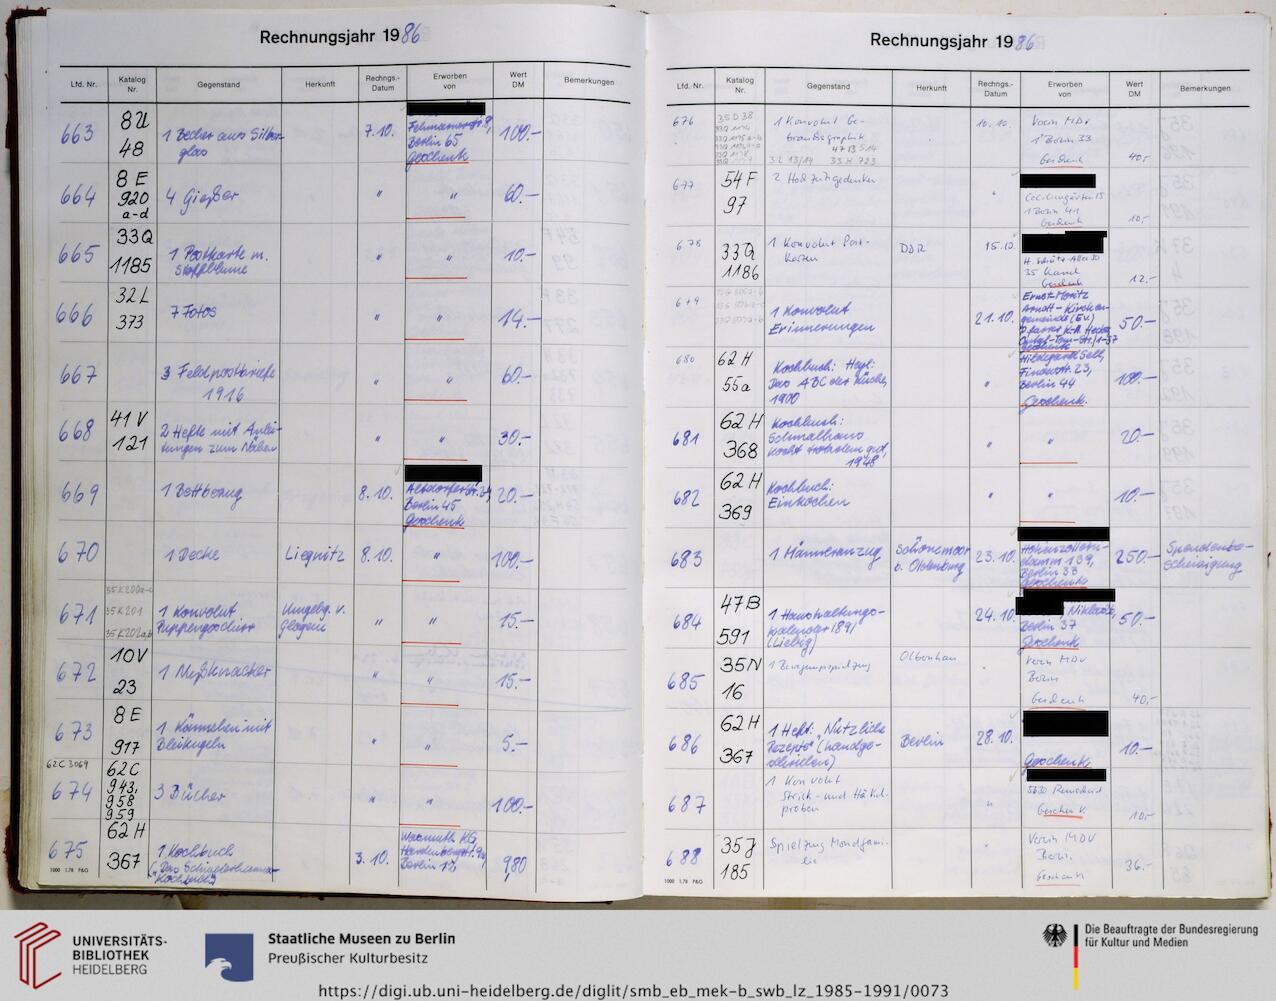 Rechnungsjahr 1986
Lfd. Nr. Katalog Nr. Gegenstand Herkunft Rechngs.-Datum Erworben von Wert DM Bemerkungen
663 8U 48 1 Becher aus Silber-
glas 7.10. Berlin 65 Geschenk 100.-
664 8 E 920 a-d 4 Gießer " " 60.-
665 33Q 1185 1 Postkarte m.
Stoffblume " " 10.-
666 32L 373 7 Fotos " " 14.-
667 3 Feldpostbriefe
1916 " " 60.-
668 41 V 121 2 Hefte mit Anlei-
tungen zum Nähen " " 30.-
669 1 Bettbezug 8.10. Berlin 45 Geschenk 20.-
670 1 Decke Liegnitz 8.10. " 100.-
35K201
671 1 Konvolut
Puppengeschirr Umgebg. v.
Glogau " " 15.-
672 10V 23 1 Nußknacker " " 15.-
673 8 E 917 1 Kännchen mit
Bleikugeln " " 5.-
62C 3069
674 62C 943, 958 959 3 Bücher " " 100.-
675 62 H 367 1 Kochbuch 3.10. Wasmuth KG
Berlin 12 9,80
1000 1.78 P&G
Rechnungsjahr 1986
Lfd. Nr. Katalog Nr. Gegenstand Herkunft Rechngs.-Datum Erworben von Wert DM Bemerkungen
676 35D38 1 Konvolut Ge-
brauchsgraphik
47B 514
32L 13/14 33H 723 10.10. Verein MDV
1 Berlin 33
Geschenk 40,-
677 54 F 97 2 Hochzeitsgedenken " 1 Berlin 41
Geschenk 10,-
678 33Q 1186 1 Konvolut Post-
karten DDR 15.10. Geschenk 12.-
679 1 Konvolut
Erinnerungen 21.10. Ernst-Moritz
Arndt-Kirchen-
gemeinde (Ev.) 50.-
680 62 H 55a Kochbuch: Heyl:
Das ABC der Küche,
1900 " Berlin 44
Geschenk. 100.-
681 62 H 368 Kochbuch:
Schmalhans
kocht trotzdem gut,
1948 " " 20.-
682 62 H 369 Kochbuch:
Einkochen " " 10.-
683 1 Männeranzug Schönemoor
b. Oldenburg 23.10. Hohenzollern-
damm 139,
Berlin 33
Geschenk 250.- Spendenbe-
scheinigung
684 47B 591 1 Haushaltungs-
kalender 1891
(Liebig) 24.10. Berlin 37
Geschenk 50.-
685 35N 16 Olbernhau " Verein MDV
Berlin
Geschenk 40,-
686 62 H 367 1 Heft: "Nützliche
Rezepte" (handge-
schrieben) Berlin 28.10. Geschenk 10.-
687 1 Konvolut
Strick- und Häkel-
proben " 5630 Remscheid
Geschenk 10,-
688 35J 185 Spielzeug Mondfami-
lie Verein MDV
Berlin
Geschenk 36.-
1000 1.78 P&G
UNIVERSITÄTS-
BIBLIOTHEK
HEIDELBERG
Staatliche Museen zu Berlin
Preußischer Kulturbesitz
Die Beauftragte der Bundesregierung
für Kultur und Medien
https://digi.ub.uni-heidelberg.de/diglit/smb_eb_mek-b_swb_lz_1985-1991/0073